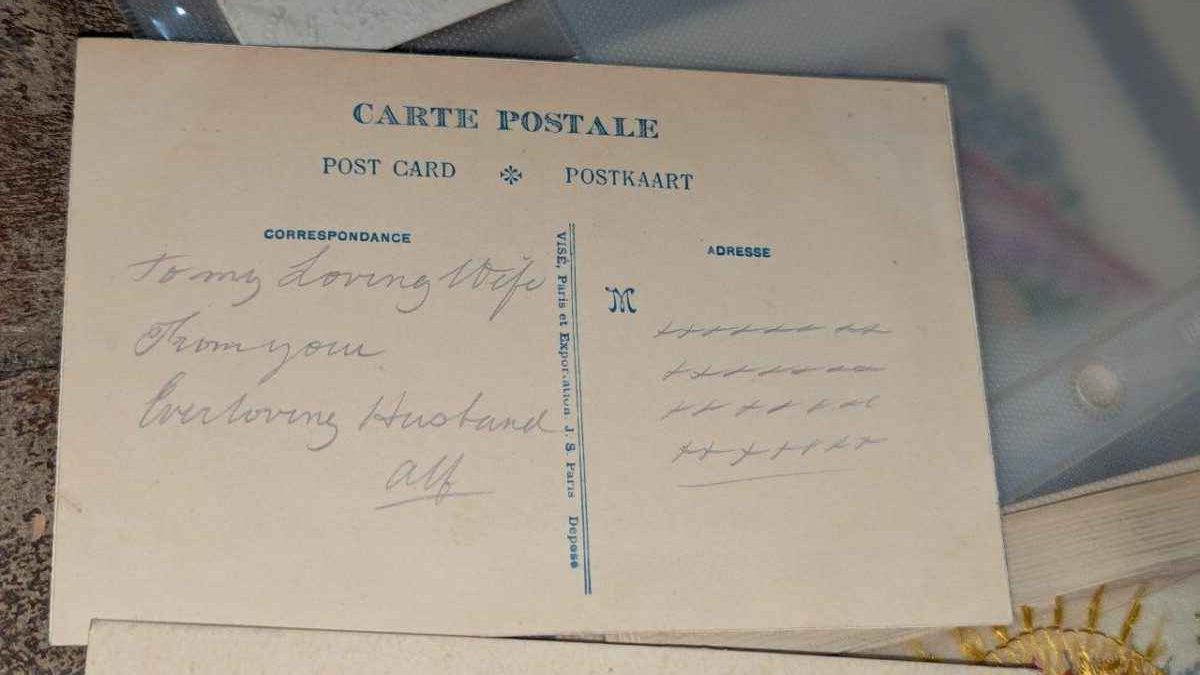 CARTE POSTALE
POST CARD * POSTKAART
CORRESPONDANCE
To my Loving Wife
From your
Ever loving Husband
Alf
VISÉ, Paris et Exportation. J. S. Paris Depose
ADRESSE
M
xxxxxxx xx
xxxxxxx
xxxxxx
xxxxxxx